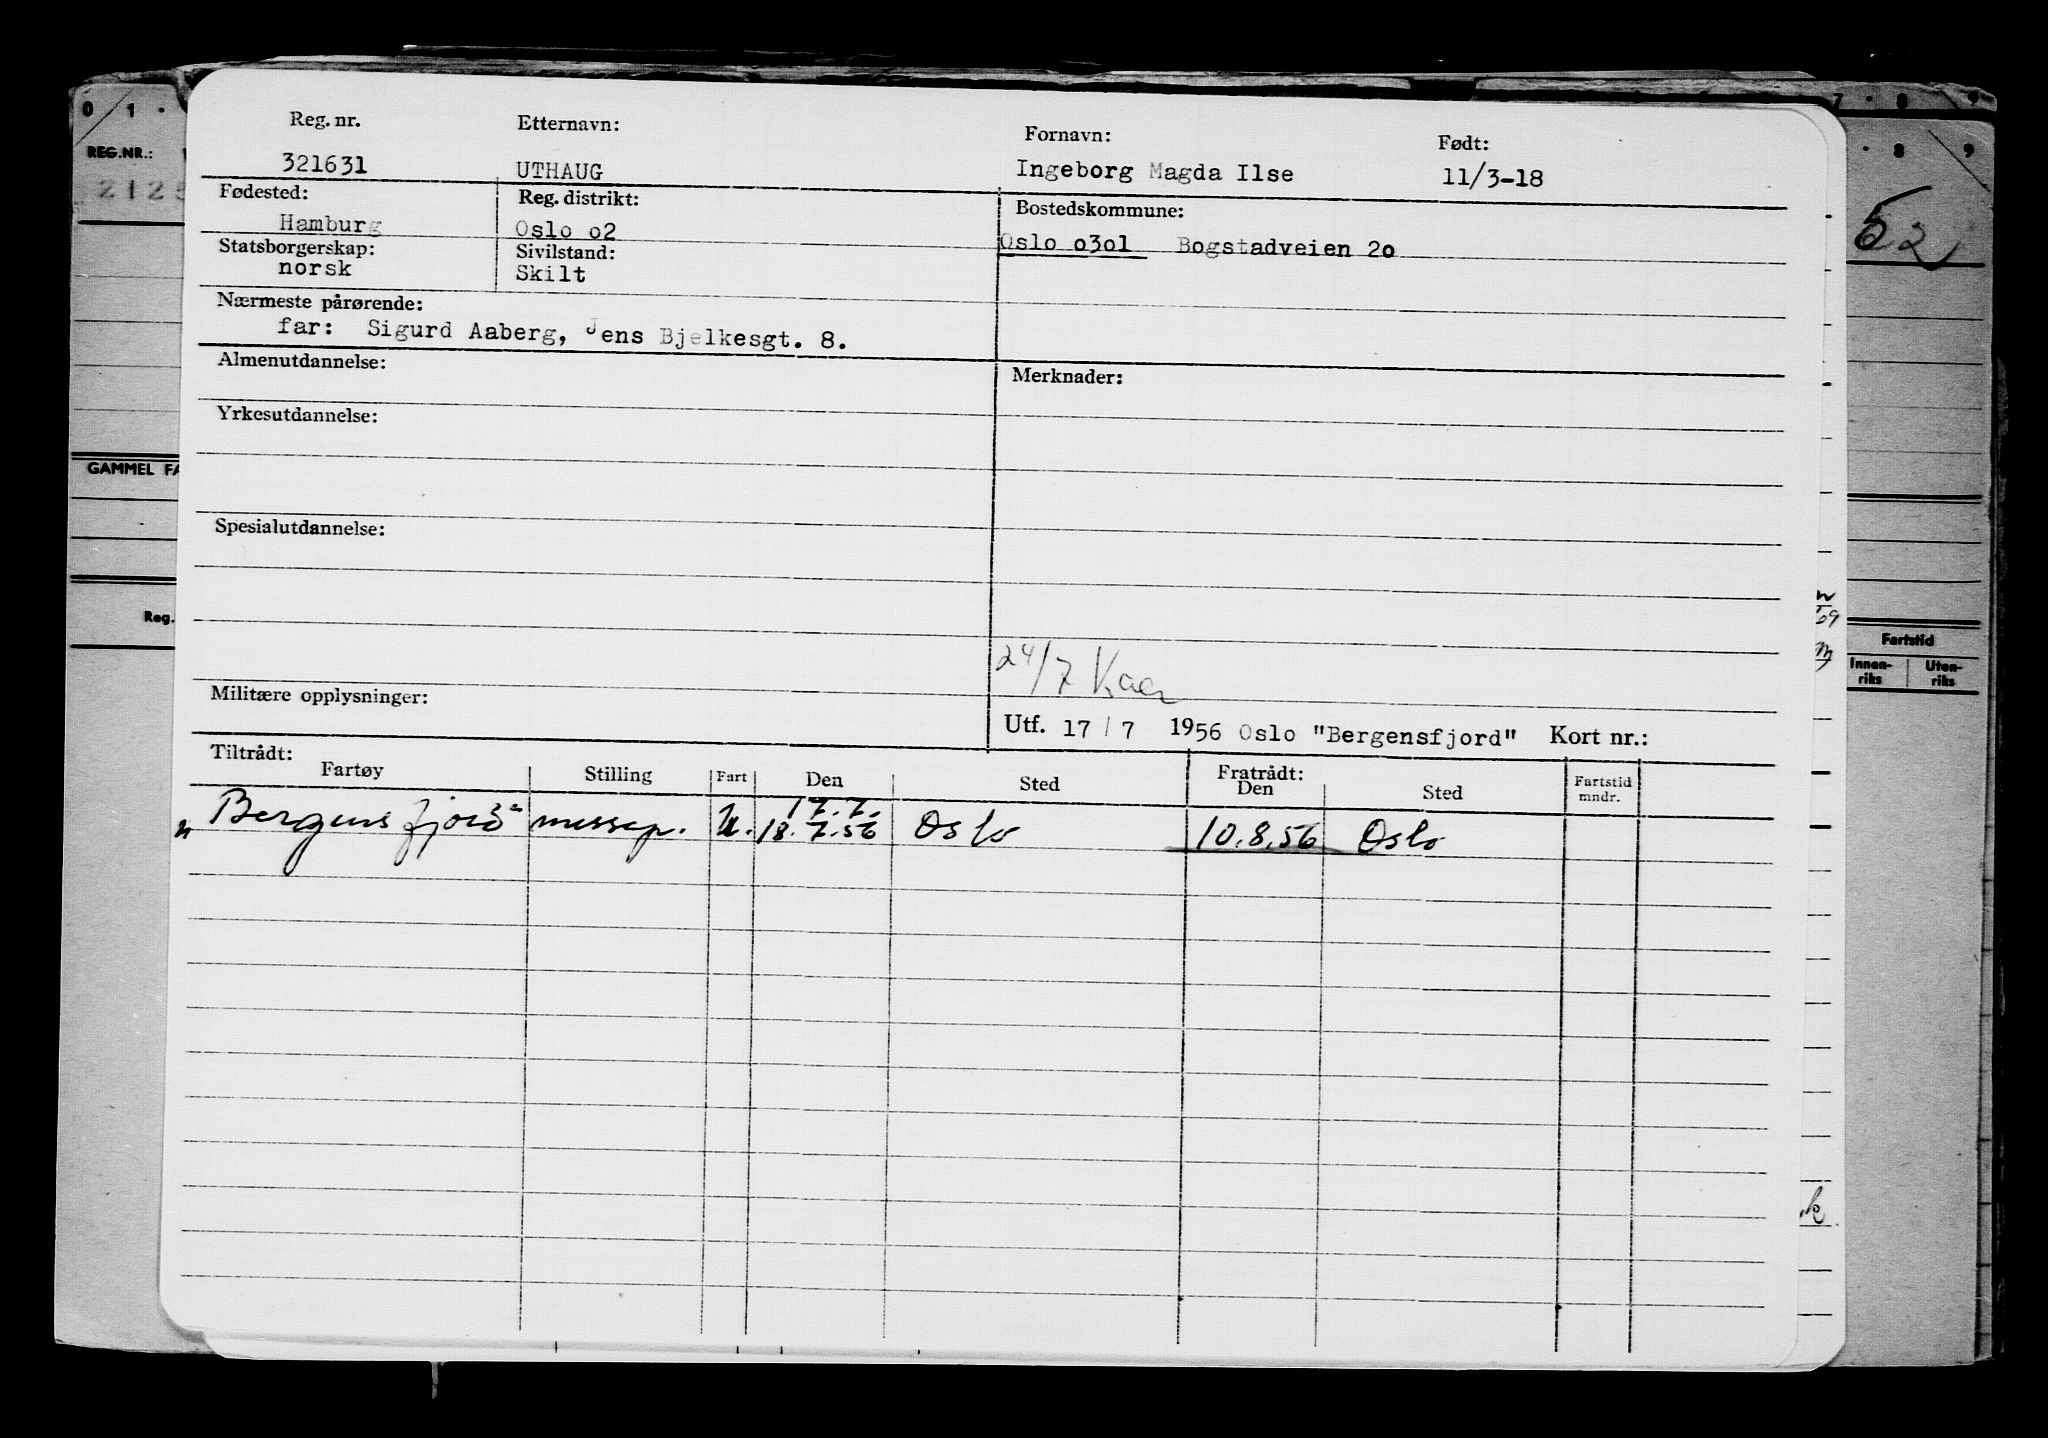 Reg. nr. Etternavn: Fornavn: Født:
321631 UTHAUG Ingeborg Magda Ilse 11/3-18
Fødested: Reg. distrikt: Bostedskommune:
Hamburg Oslo o2 Oslo o3o1 Bogstadveien 2o
Statsborgerskap: Sivilstand:
norsk Skilt
Nærmeste pårørende:
far: Sigurd Aaberg, Jens Bjelkesgt. 8.
Almenutdannelse: Merknader:
Yrkesutdannelse:
Spesialutdannelse:
24/7
Militære opplysninger:
Utf. 17 / 7 1956 Oslo "Bergensfjord" Kort nr.:
Tiltrådt: Fratrådt:
Fartøy Stilling Fart Den Sted Den Sted Fartstid mndr.
17.7.
Bergensfjord messep. U. 18.7.56 Oslo 10.8.56 Oslo
0 1 .
REG.NR.:
GAMMEL FA
Reg.
7 . 8 9
. 8 9
52
Fartstid
Innen-riks Uten-riks